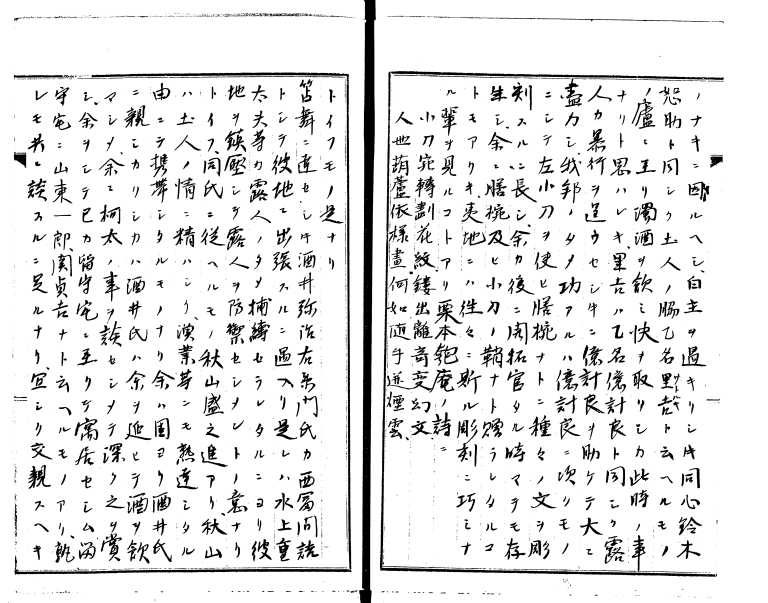 ノナキニ因ルヘシ自主ヲ過キリシ時同心鈴木
恕助ト同シク土人ノ脇乙名
ノ廬ニ至リ濁酒ヲ飲ミ快ヲ取リシカ此時ノ事
ナリト思ハレキ黒吉ハ乙名億計良ト同シク露
人カ暴行ヲ逞ウセシキニ億計良ヲ助ケテ大ニ
盡力シ我邦ノタメ功アルハ億計良ニ次クモノ
ニシテ左小刀ヲ使ヒ膳椀ナトニ種々ノ文ヲ彫
刻スルニ長シ余カ後ニ開拓官タル時マテモ存
生シ余ニ膳椀及ヒ小刀ノ鞘ナト贈ラレタルコ
トモアリキ夷地ニハ往々ニ斯ル彫刻ニ巧ミナ
ル輩ヲ見ルコトアリ栗本匏庵ノ詩ニ
小刀宛轉劃花紋鏤出離奇變幻文
人世葫蘆依樣畫何如随手逆煙雲
トイフモノ是ナリ
笘舞ニ達セシ時酒井弥治右衛門氏カ西冨内詰
トシテ彼地ニ出張スルニ過ヘリ是レハ水上重
太夫等カ露人ノタメ捕縛セラレタルニヨリ彼
地ヲ鎮壓シテ露人ヲ防禦セシメントノ意ナリ
トイフ同氏ニ從ヘルモノ秋山盛之進アリ秋山
ハ土人ノ情ニ精ハシク漁業等ニモ熟達シタル
由ニテ携帯シタルモノナリ余ハ固ヨリ酒井氏
ニ親シカリシカハ酒井氏ハ余ヲ延ヒテ酒ヲ飲
マシメ余ニ柯太ノ事ヲ談セシメテ深ク之ヲ賞
シ余ヲシテ已カ留守宅ニ至リテ寓居セシム
守宅ニ山東一郎関貞吉ナト云ヘルモノアリ
レモ共ニ談スルニ足ルナリ宜シク交親スヘキ